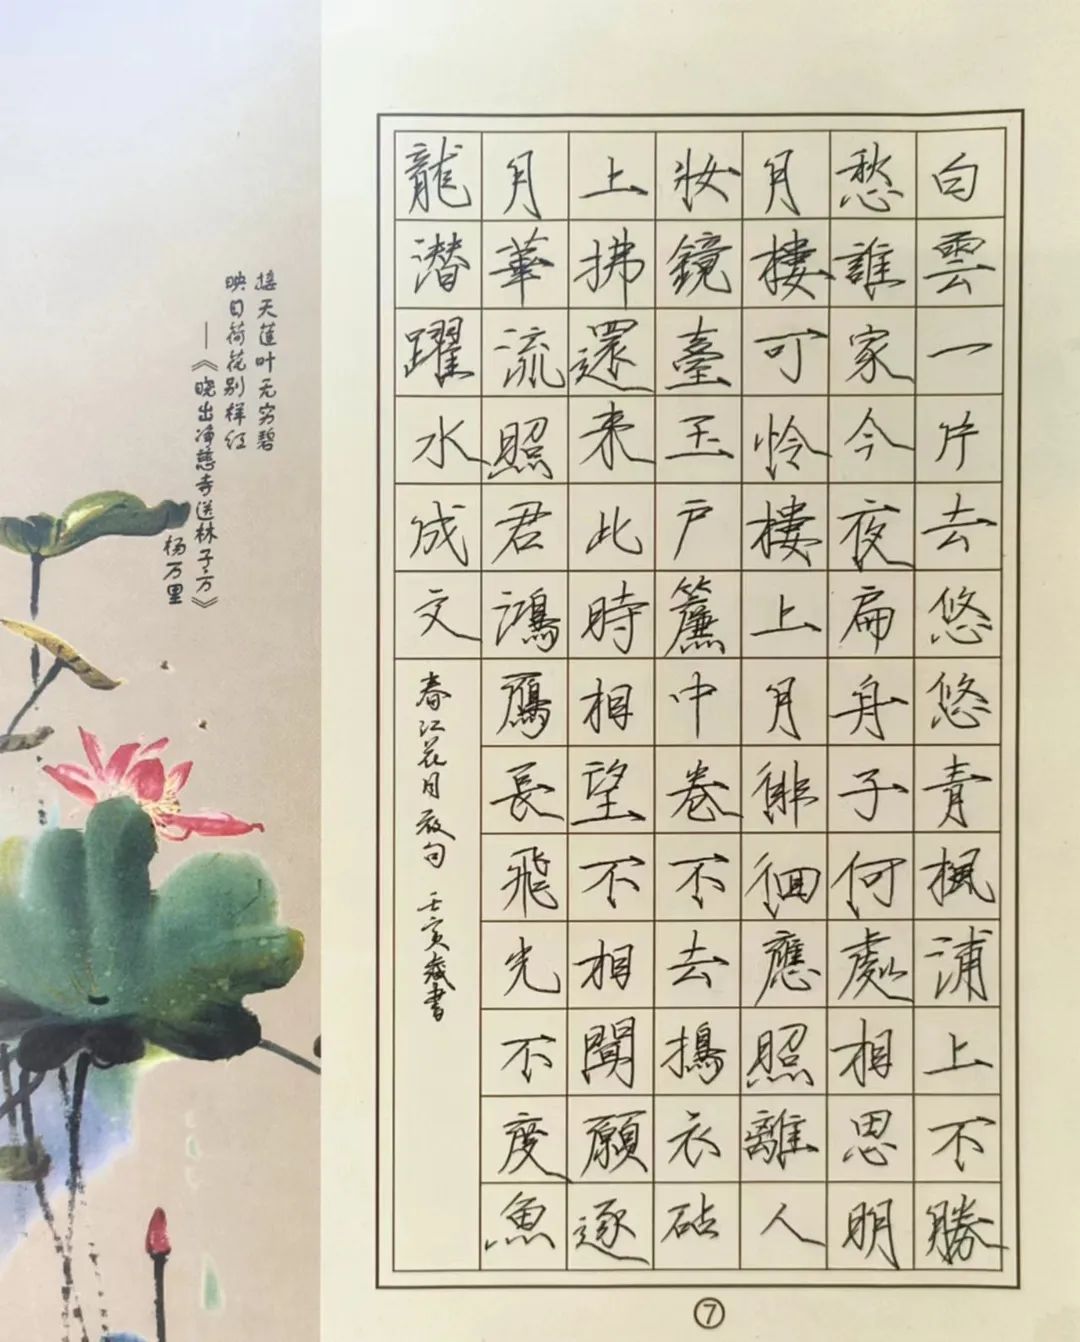 白雲一片去悠悠青楓浦上不勝
愁誰家今夜扁舟子何處相思明
月樓可憐樓上月徘徊應照離人
妝鏡臺玉戶簾中卷不去搗衣砧
上拂還來此時相望不相聞願逐
月華流照君鴻雁長飛光不度魚
龍潜躍水成文
春江花月夜句 壬寅 書
接天莲叶无穷碧
映日荷花别样红
——《晓出净慈寺送林子方》
杨万里
⑦